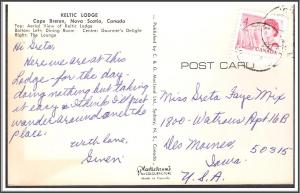 KELTIC LODGE
Cape Breton, Nova Scotia, Canada
Top: Aerial View of Keltic Lodge
Bottom: Left: Dining Room Centre: Gourmet's Delight
Right: The Lounge
Hi Greta;
Here we are at this
Lodge for the day.
doing nothing but taking
it easy & I think I'll just
wander around over the
place.
With love,
Gwen
POST CARD
Miss Greta Faye Mix
1800-Watrous Apt 16B
Des Moines, 50315
Iowa.
U.S.A.